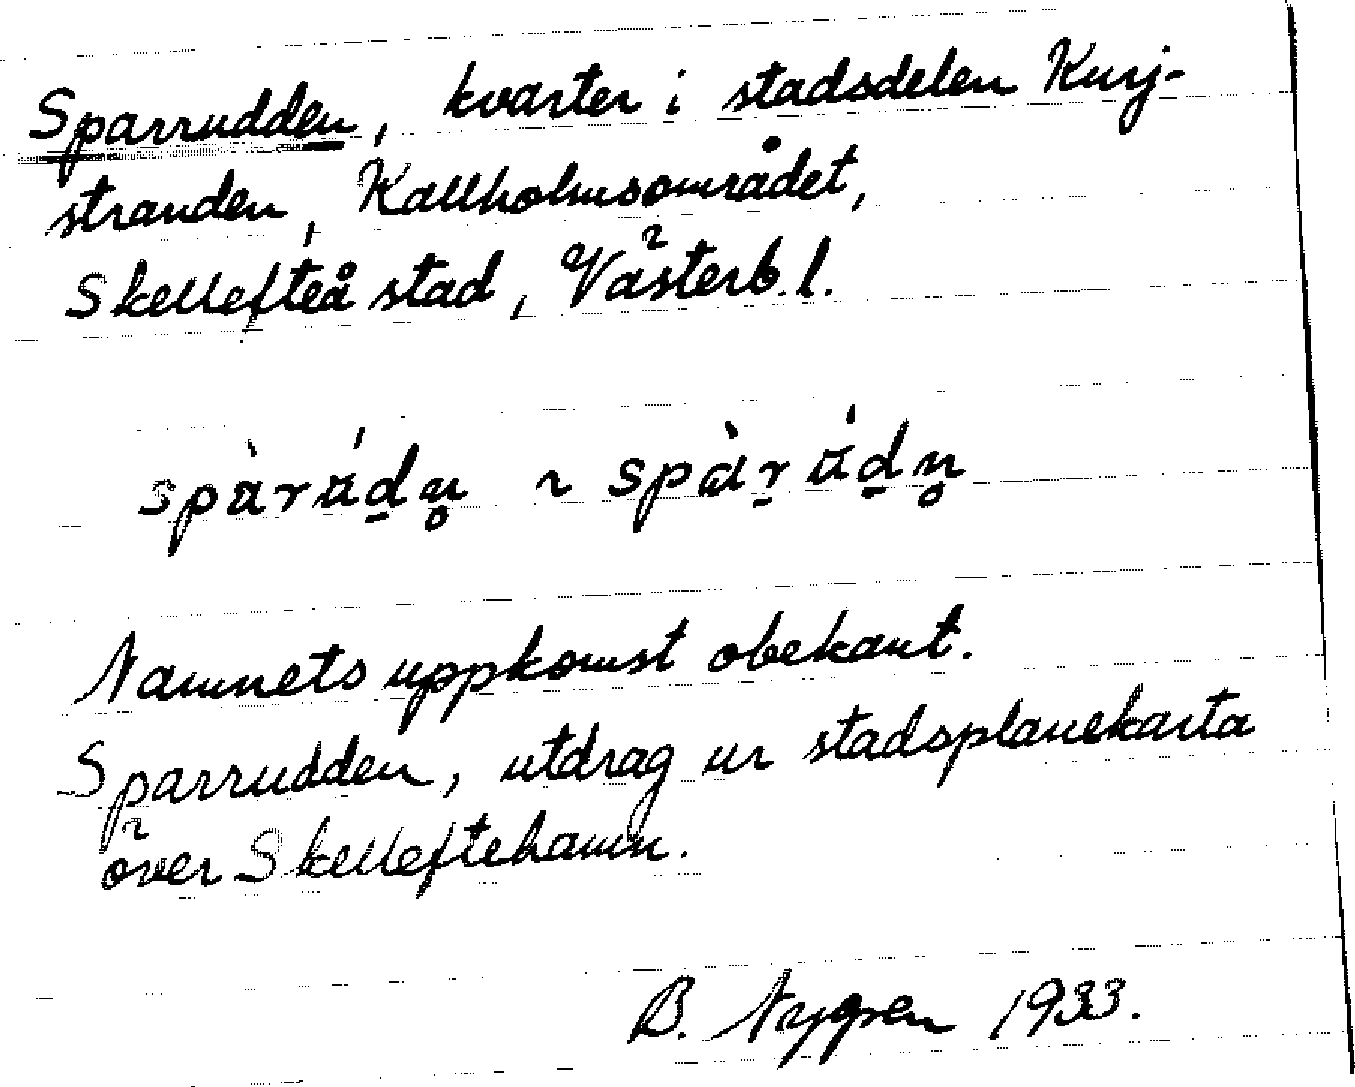 Sparrudden, kvarter i stadsdelen Kurj-
stranden, Kallholmsområdet,
Skellefteå stad, Västerb. l.
spàrádn̥ ~ spàráḏn̥
Namnets uppkomst obekant.
Sparrudden, utdrag ur stadsplanekarta
över Skelleftehamn.
B. Nygren 1933.